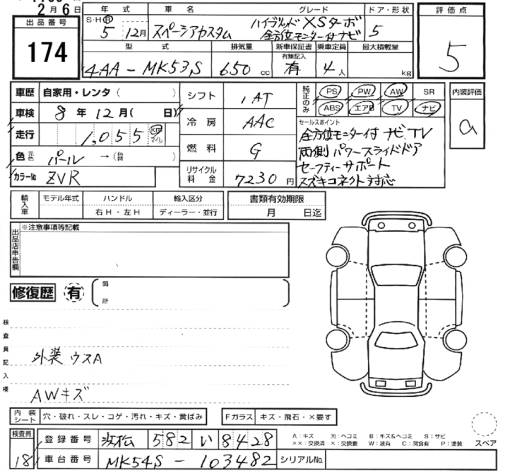 2月6日
出品番号
174
年式 車名 グレード ドア・形状
S・H・R 5年 12月 スペーシアカスタム ハイブリッドXSターボ 全方位モニター付ナビ 5
型式 排気量 新車保証書 乗車定員 最大積載量
有無記入
4AA-MK53S 650cc 有 4人 kg
評価点
5
車歴 自家用・レンタ( )
車検 8年12月( 日)
走行 1,055 km マイル
色 元色 パール →(替色 )
カラーNo ZVR
シフト 1AT
冷房 AAC
燃料 G
リサイクル料金 7230円
純正のみ
PS PW AW SR
ABS エアB TV ナビ
内装評価
a
セールスポイント
全方位モニター付ナビTV
両側パワースライドドア
セーフティーサポート
スズキコネクト対応
輸入車 モデル年式 ハンドル 輸入区分
年 右H・左H ディーラー・並行
書類有効期限
月 日迄
出品店申告欄
※注意事項等記載
修復歴 有
検査員記入欄
外装ウスA
AWキズ
内装シート 穴・破れ・スレ・コゲ・汚れ・キズ・黄ばみ
Fガラス キズ・飛石・×要す
スペア
検査員
181
登録番号 浜松 582 い 8428
車台番号 MK54S-103482 シリアルNo.
A:キズ U:ヘコミ B:キズ&ヘコミ S:サビ
××:交換済 ×:交換要 W:波有 C:腐食有 P:塗装